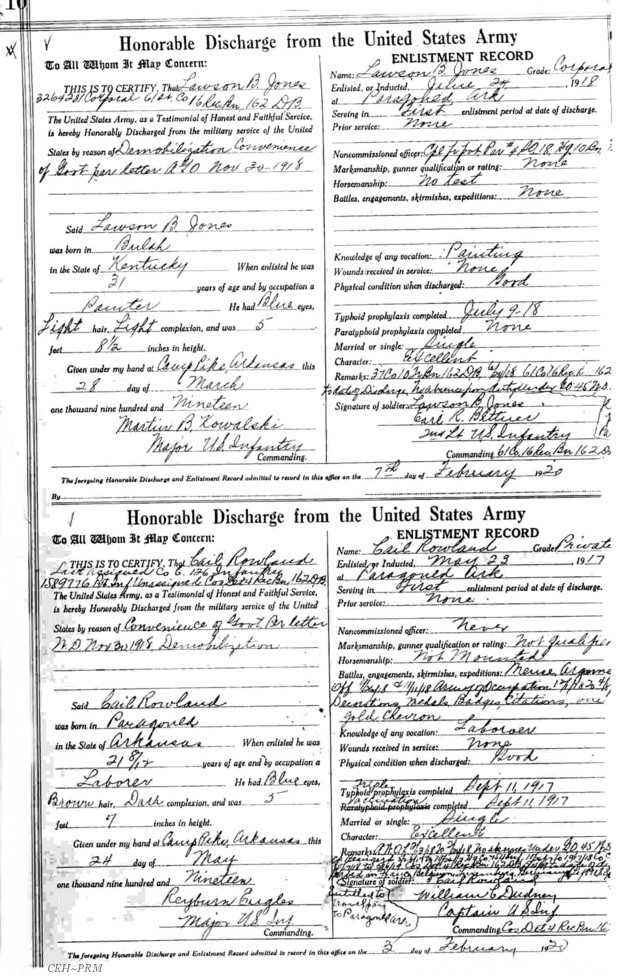 10
Honorable Discharge from the United States Army
To All Whom It May Concern:
THIS IS TO CERTIFY, That Lawson B. Jones
3264281 Corporal 61st Co 16 Rec Bn, 162 D.B.
The United States Army, as a Testimonial of Honest and Faithful Service,
is hereby Honorably Discharged from the military service of the United
States by reason of Demobilization Convenience
of Govt per letter AGO Nov 30-1918
Said Lawson B Jones
was born in Bulah
in the State of Kentucky When enlisted he was
31 years of age and by occupation a
Painter He had Blue eyes,
Light hair, Light complexion, and was 5
feet 8½ inches in height.
Given under my hand at Camp Pike, Arkansas this
28 day of March
one thousand nine hundred and Nineteen
Martin B. Kowalski
Major U.S. Infantry
Commanding.
ENLISTMENT RECORD
Name: Lawson B. Jones Grade: Corporal
Enlisted, or Inducted, June 24, 1918
at Paragould, Ark
Serving in First enlistment period at date of discharge.
Prior service: None
Noncommissioned officer: Cpl
Marksmanship, gunner qualification or rating: None
Horsemanship: No test
Battles, engagements, skirmishes, expeditions: None
Knowledge of any vocation: Painting
Wounds received in service: None
Physical condition when discharged: Good
Typhoid prophylaxis completed July 9-18
Paratyphoid prophylaxis completed None
Married or single: Single
Character: Excellent
Remarks: 37 Co 10 Tr Bn 162 DB 61 Co 16 Rec 162
to date of Discharge, No absence from duty under GO 45 W.D.
Signature of soldier: Lawson B. Jones
Earl R. Bettner
2nd Lt U.S. Infantry
Commanding 61 Co, 16 Rec Bn 162 D.B.
The foregoing Honorable Discharge and Enlistment Record admitted to record in this office on the 7th day of February 1920
By
Honorable Discharge from the United States Army
To All Whom It May Concern:
THIS IS TO CERTIFY, That Cail Rowland
Last assigned Co C. 126 Infantry
1589776 Unassigned Cas Det 4 Rec Bn, 162 D.B.
The United States Army, as a Testimonial of Honest and Faithful Service,
is hereby Honorably Discharged from the military service of the United
States by reason of Convenience of Govt. Per letter
W.D. Nov 30, 1918 Demobilization
Said Cail Rowland
was born in Paragould
in the State of Arkansas When enlisted he was
21 8/12 years of age and by occupation a
Laborer He had Blue eyes,
Brown hair, Dark complexion, and was 5
feet 7 inches in height.
Given under my hand at Camp Pike, Arkansas this
24 day of May
one thousand nine hundred and Nineteen
Reyburn
Major U.S. Inf
Commanding.
ENLISTMENT RECORD
Name: Cail Rowland Grade: Private
Enlisted, or Inducted, May 23, 1917
at Paragould Ark
Serving in First enlistment period at date of discharge.
Prior service: None
Noncommissioned officer: Never
Marksmanship, gunner qualification or rating: Not Qualified
Horsemanship: Not Mounted
Battles, engagements, skirmishes, expeditions: Meuse, Argonne
Off Army of Occupation
Decorations, Medals, Badges, Citations, one
gold chevron
Knowledge of any vocation: Laborer
Wounds received in service: None
Physical condition when discharged: Good
Triple
Typhoid prophylaxis completed Sept 11, 1917
Vaccination
Paratyphoid prophylaxis completed Sept 11, 1917
Married or single: Single
Character: Excellent
Remarks: No absence under GO 45 WD
Signature of soldier: Cail Rowland
Entitled to
Travel pay
to Paragould Ark
William C. Dudney
Captain A.S. Inf
Commanding Cas Det 4 Rec Bn 16
The foregoing Honorable Discharge and Enlistment Record admitted to record in this office on the 3 day of February 1920
CEH~PRM